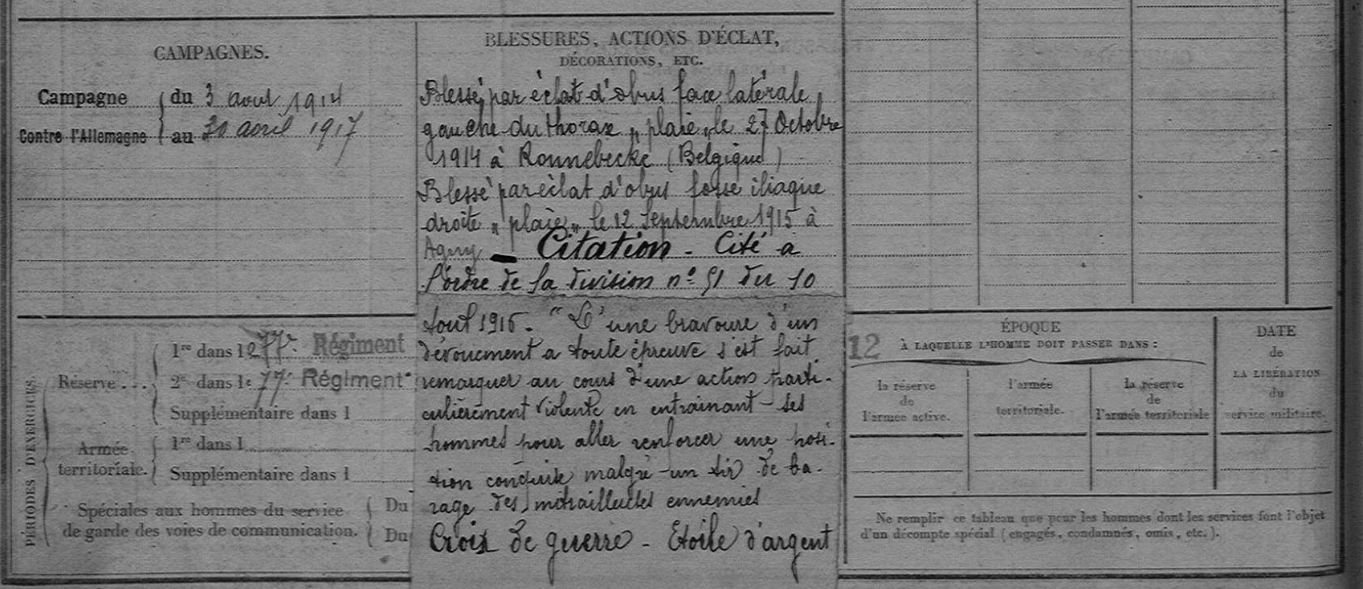 CAMPAGNES.
Campagne
Contre l'Allemagne
du 3 aout 1914
au 20 avril 1917
BLESSURES, ACTIONS D'ÉCLAT,
DÉCORATIONS, ETC.
Blessé par éclat d'obus face latérale
gauche du thorax „ plaie „ le 27 Octobre
1914 à Ronnebecke (Belgique)
Blessé par éclat d'obus fosse iliaque
droite „ plaie „ le 12 Septembre 1915 à
Agny – Citation - Cité a
l'ordre de la division n° 51 du 10
Aout 1916. - "D'une bravoure d'un
dévouement a toute épreuve s'est fait
remarquer au cours d'une action parti-
culièrement violente en entrainant - ses
hommes pour aller renforcer une posi-
tion conquise malgré un tir de ba-
rage des mitrailleuses ennemies
Croix de guerre - Etoile d'argent
PÉRIODES D'EXERCICES.
Réserve...
1re dans l 277e Régiment
2e dans le 77e Régiment
Supplémentaire dans l
Armée
territoriale.
1re dans l
Supplémentaire dans l
Spéciales aux hommes du service
de garde des voies de communication.
Du
Du
12
ÉPOQUE
À LAQUELLE L'HOMME DOIT PASSER DANS :
la réserve
de
l'armée active.
l'armée
territoriale.
la réserve
de
l'armée territoriale
DATE
de
LA LIBÉRATION
du
service militaire.
Ne remplir ce tableau que pour les hommes dont les services font l'objet
d'un décompte spécial (engagés, condamnés, omis, etc.).